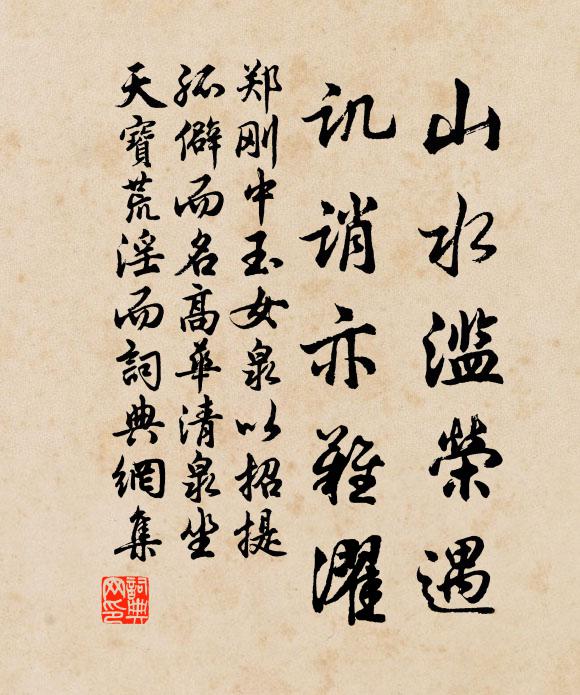 山水滥荣遇
讥诮亦难濯
郑刚中玉女泉以招提
孤僻而名高华清泉坐
天宝荒淫而词典网集
詞典
网印